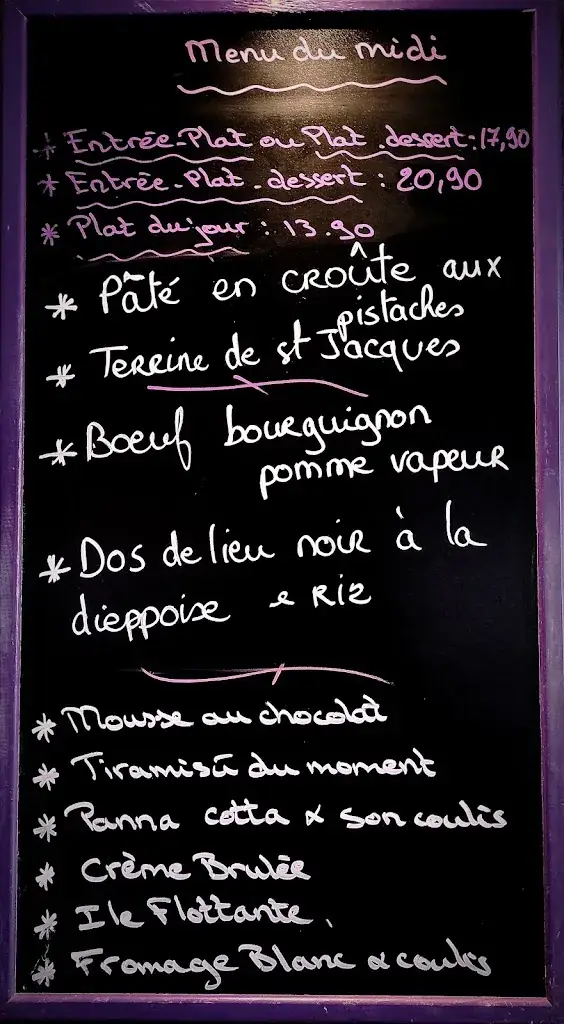 Menu du midi
* Entrée-Plat ou Plat.dessert:17,90
* Entrée-Plat-dessert : 20,90
* Plat du jour : 13.90
* Pâté en croûte aux
pistaches
* Terrine de st Jacques
* Boeuf bourguignon
pomme vapeur
* Dos de lieu noir à la
dieppoise & Riz
* Mousse au chocolat
* Tiramisù du moment
* Panna cotta & son coulis
* Crème Brulée
* Ile Flottante,
* Fromage Blanc & coulis